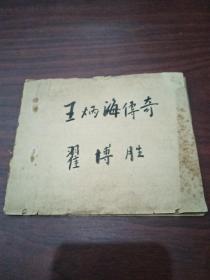 王炳海傳奇
翟博胜